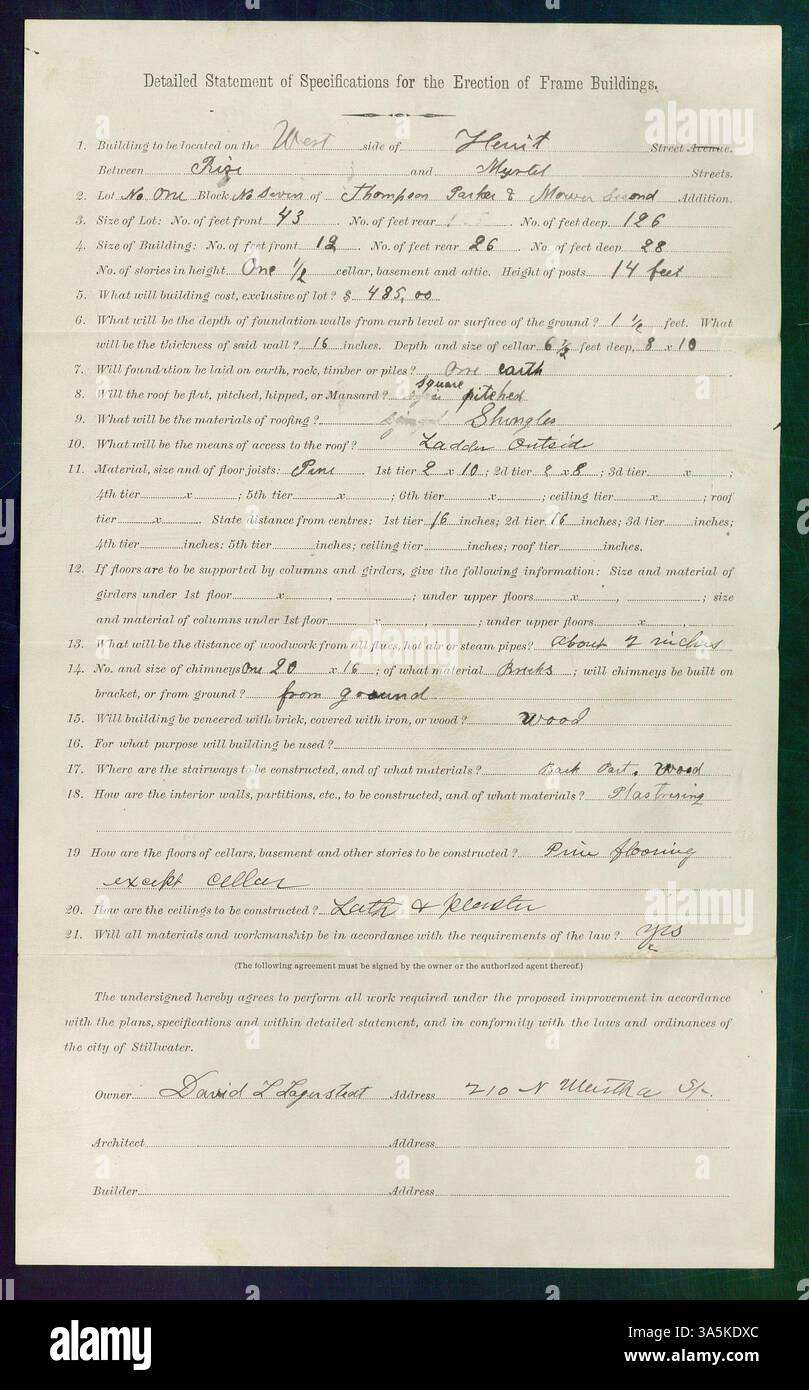 Detailed Statement of Specifications for the Erection of Frame Buildings.
1. Building to be located on the West side of Street Avenue.
Between and Streets.
2. Lot No One Block No Seven of Thompson Parker & Mower Second Addition.
3. Size of Lot: No. of feet front 43 No. of feet rear No. of feet deep 126
4. Size of Building: No. of feet front 12 No. of feet rear 26 No. of feet deep 28
No. of stories in height One 1/2 cellar, basement and attic. Height of posts 14 feet
5. What will building cost, exclusive of lot? $ 485.00
6. What will be the depth of foundation walls from curb level or surface of the ground? 1 1/2 feet. What
will be the thickness of said wall? 16 inches. Depth and size of cellar 6 1/2 feet deep, 8 x 10
7. Will foundation be laid on earth, rock, timber or piles? One earth
square
8. Will the roof be flat, pitched, hipped, or Mansard? pitched
9. What will be the materials of roofing? Shingles
10. What will be the means of access to the roof? Ladder Outside
11. Material, size and of floor joists: Pine 1st tier 2 x 10; 2d tier 2 x 8; 3d tier x ;
4th tier x ; 5th tier x ; 6th tier x ; ceiling tier x ; roof
tier x . State distance from centres: 1st tier 16 inches; 2d tier 16 inches; 3d tier inches;
4th tier inches: 5th tier inches; ceiling tier inches; roof tier inches.
12. If floors are to be supported by columns and girders, give the following information: Size and material of
girders under 1st floor x , ; under upper floors x , ; size
and material of columns under 1st floor x , ; under upper floors x ,
13. What will be the distance of woodwork from all flues, hot air or steam pipes? about 2 inches
14. No. and size of chimneys One 20 x 16 ; of what material Bricks ; will chimneys be built on
bracket, or from ground? from ground
15. Will building be veneered with brick, covered with iron, or wood? Wood
16. For what purpose will building be used?
17. Where are the stairways to be constructed, and of what materials? Back Part. Wood
18. How are the interior walls, partitions, etc., to be constructed, and of what materials? Plastrring
19 How are the floors of cellars, basement and other stories to be constructed? Pine flooring
except cellar
20. How are the ceilings to be constructed? Lath & plaster
21. Will all materials and workmanship be in accordance with the requirements of the law? Yes
(The following agreement must be signed by the owner or the authorized agent thereof.)
The undersigned hereby agrees to perform all work required under the proposed improvement in accordance
with the plans, specifications and within detailed statement, and in conformity with the laws and ordinances of
the city of Stillwater.
Owner David L Lagerstedt Address 210 N St.
Architect Address
Builder Address
alamy
alamy
alamy
alamy
alamy
alamy
Image ID: 3A5KDXC
www.alamy.com